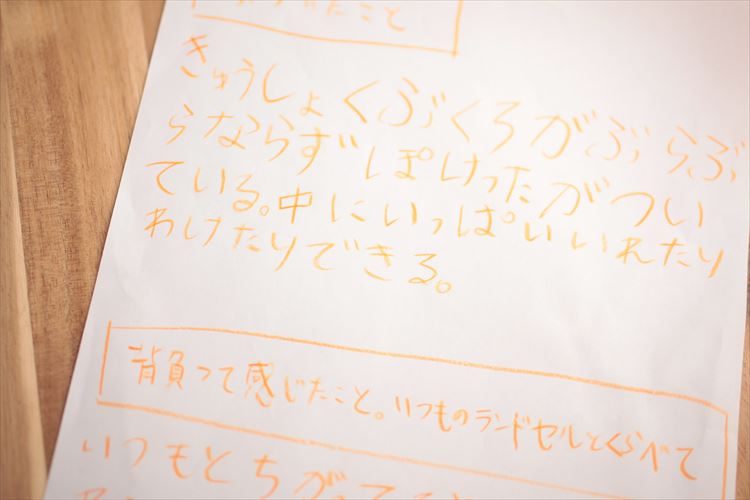 たこと
きゅうしょくぶくろがぶらぶ
らならず゛ぽけったがつい
ている。中にいっぱいいれたり
わけたりできる。
背負って感じたこと。いつものランドセルとくらべて
いつもとちがって